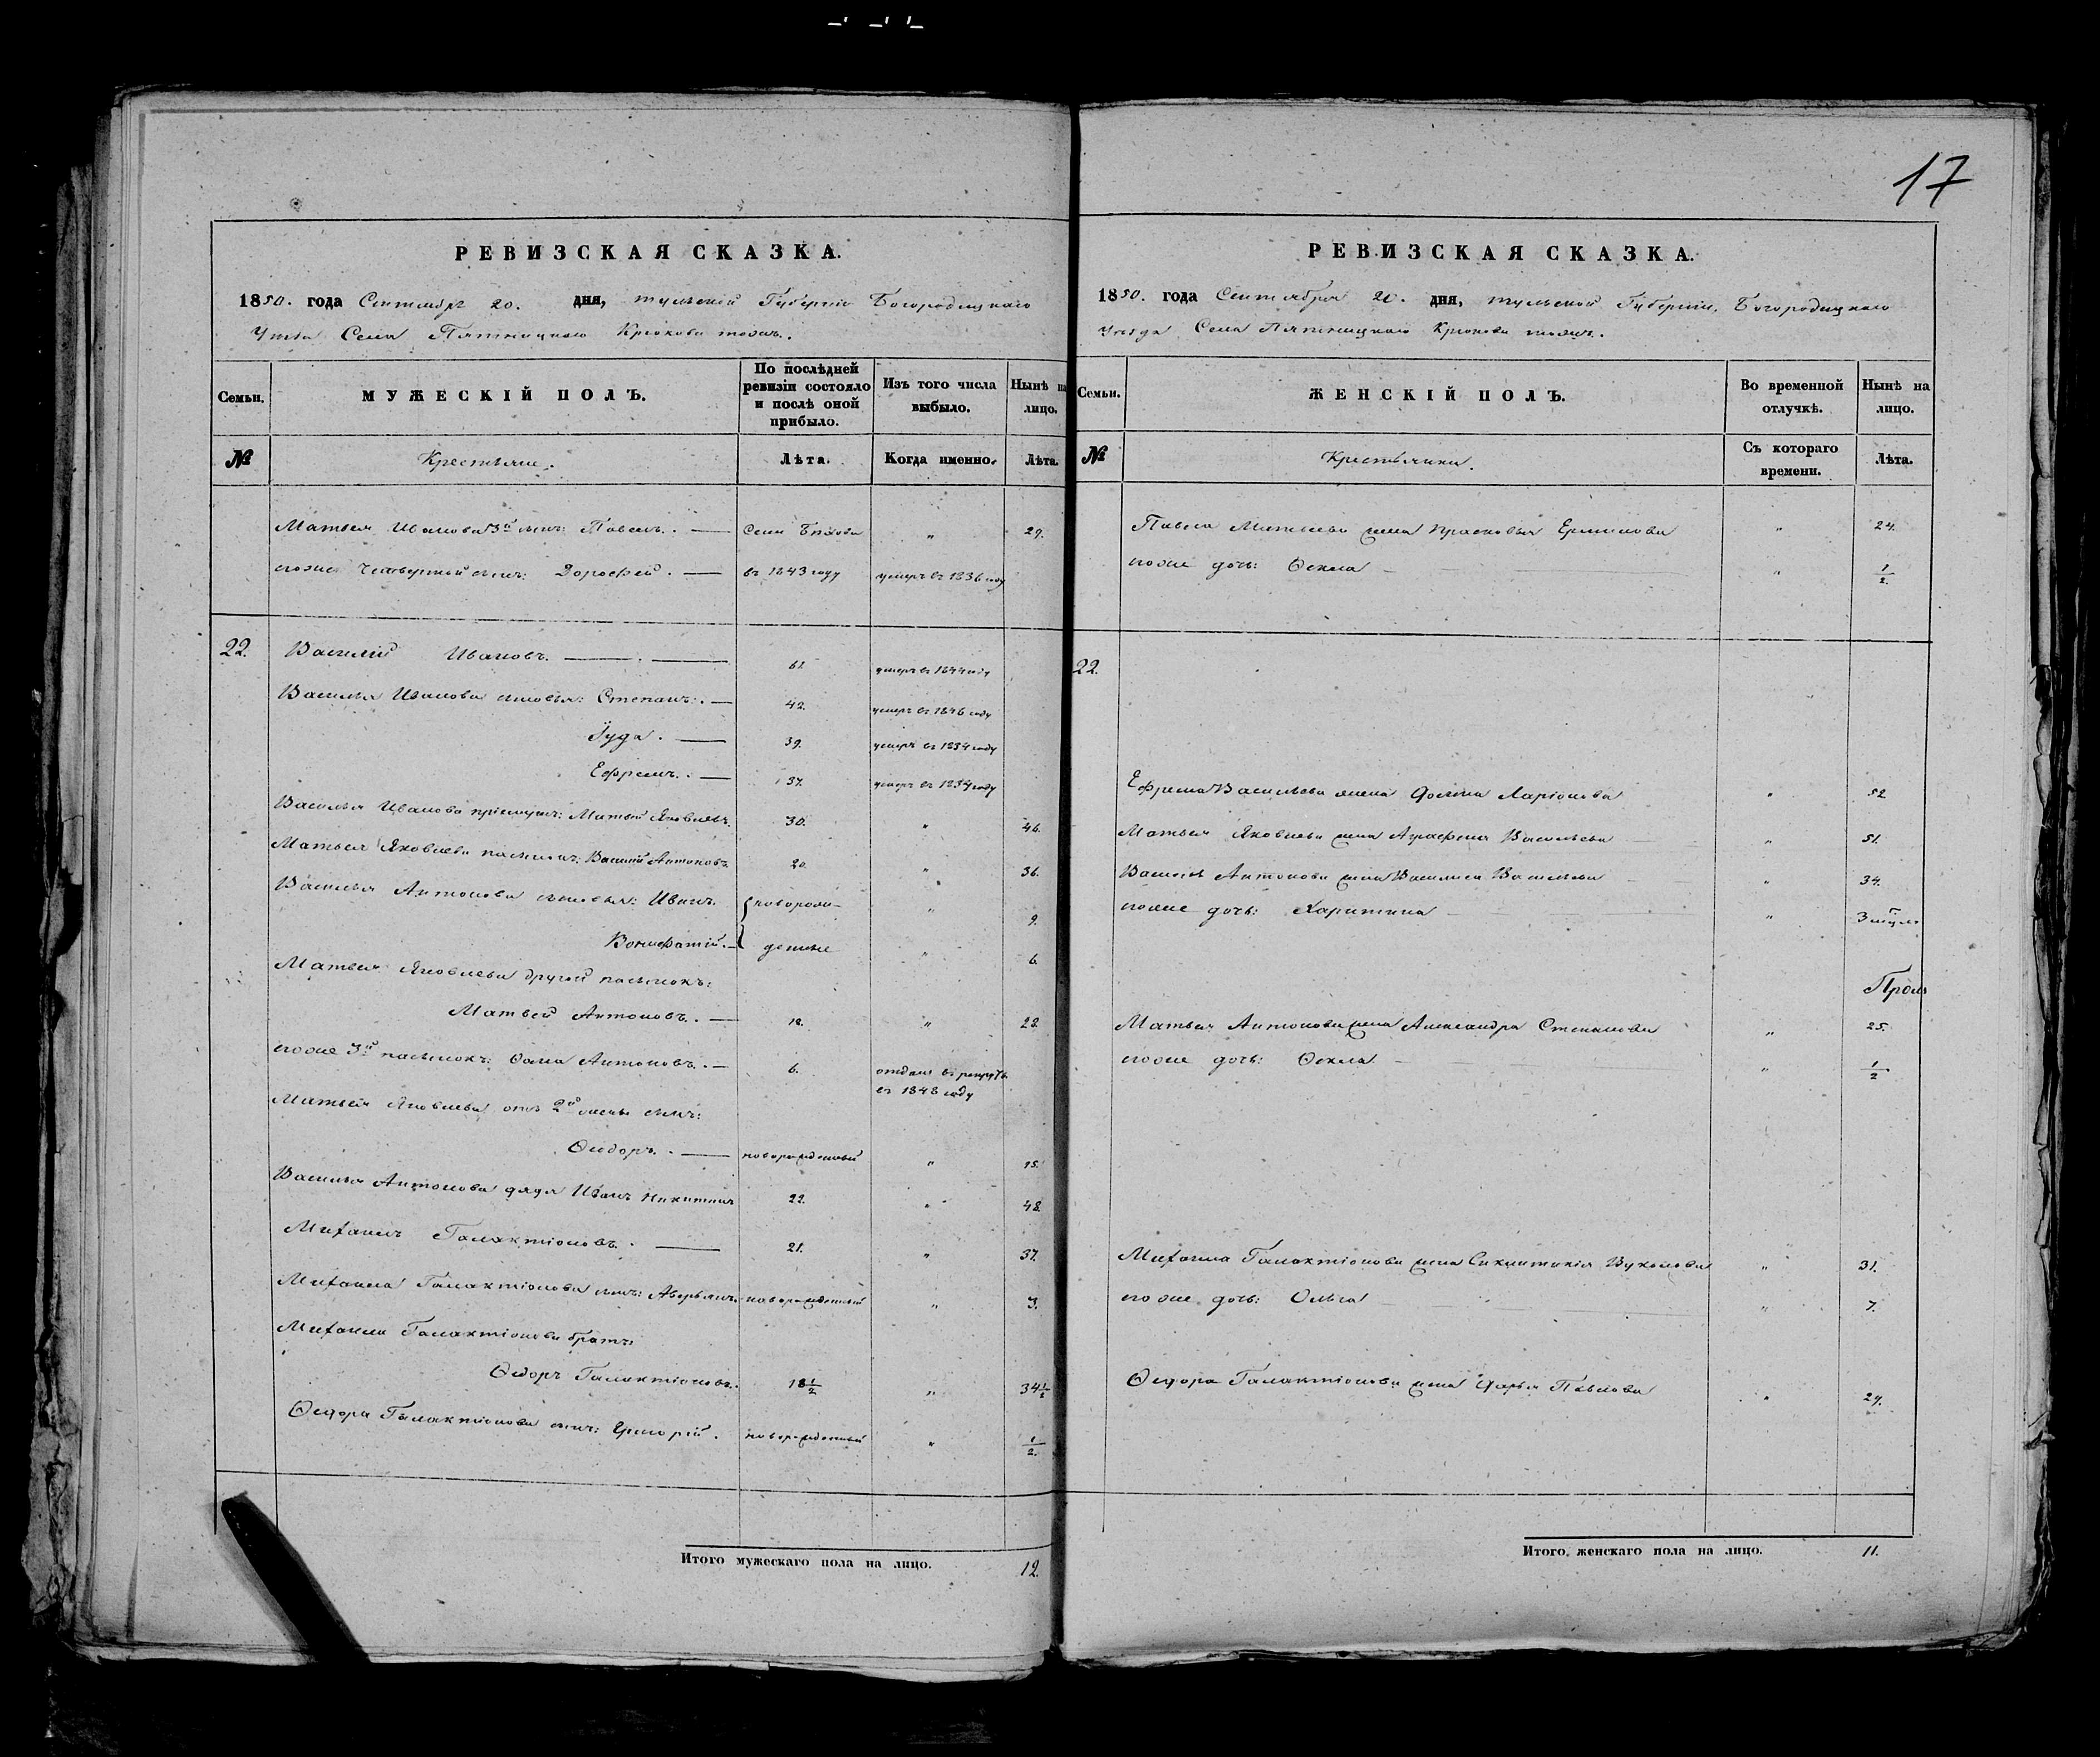 17
РЕВИЗСКАЯ СКАЗКА.
1850. года Сентября 20. дня, Тульской Губернии Богородицкаго
Уезда Села Пятницкаго Крюково тожъ.
Семьи.
МУЖЕСКІЙ ПОЛЪ.
По послѣдней ревизіи состояло и послѣ оной прибыло.
Изъ того числа выбыло.
Нынѣ на лицо.
№
Крестьяне.
Лѣта.
Когда именно.
Лѣта.
Матвея Иванова 3й сынъ: Павелъ. 29.
въ 1843 году
егоже Четвертый сынъ: Дорофей. умеръ въ 1836 году
22. Василий Ивановъ. 61. умеръ въ 1844 году
Василья Иванова сыновья: Степанъ. 42. умеръ въ 1846 году
Іуда. 39. умеръ въ 1834 году
Ефремъ. 37. умеръ въ 1834 году
Василья Иванова Матвей Яковлевъ. 30. " 46.
Матвея Яковлева пасынокъ: Василий Антоновъ 20. " 36.
Василья Антонова сыновья: Иванъ. новорож- " 9.
Вонифатій. денные " 6.
Матвея Яковлева другой пасынокъ:
Матвей Антоновъ. 12. " 28.
егоже 3й пасынокъ: Фома Антоновъ. 6. отданъ въ рекруты
въ 1848 году
Матвея Яковлева отъ 2й жены сынъ:
Ѳедоръ. новорожденный " 15.
Василья Антонова дядя Иванъ Никитинъ 22. " 48.
Михаилъ Галактіоновъ. 21. " 37.
Михаила Галактіонова сынъ: Аверьянъ. новорожденный " 3.
Михаила Галактіонова братъ:
Ѳедоръ Галактіоновъ. 18 1/2 " 34 1/2
Ѳедора Галактіонова сынъ: Григорій. новорожденный " 1/2.
Итого мужескаго пола на лицо. 12.
РЕВИЗСКАЯ СКАЗКА.
1850. года Сентября 20. дня, Тульской Губернии, Богородицкаго
Уезда Села Пятницкаго Крюково тожъ.
Семьи.
ЖЕНСКІЙ ПОЛЪ.
Во временной отлучкѣ.
Нынѣ на лицо.
№
Крестьянки.
Съ котораго времени.
Лѣта.
Павла Матвеева жена Прасковья Ермилова " 24.
егоже дочь: Ѳекла " 1/2.
22.
Ефрема Васильева жена Ларіонова " 52
Матвея Яковлева жена Аграфена Васильева " 51.
Василья Антонова жена Василиса Васильева " 34.
егоже дочь: Харитина "
Матвея Антонова жена Александра Степанова " 25.
егоже дочь: Ѳекла " 1/2
Михаила Галактіонова жена Вуколова " 31.
егоже дочь: Ольга " 7.
Ѳедора Галактіонова жена Дарья Павлова " 29.
Итого женскаго пола на лицо. 11.